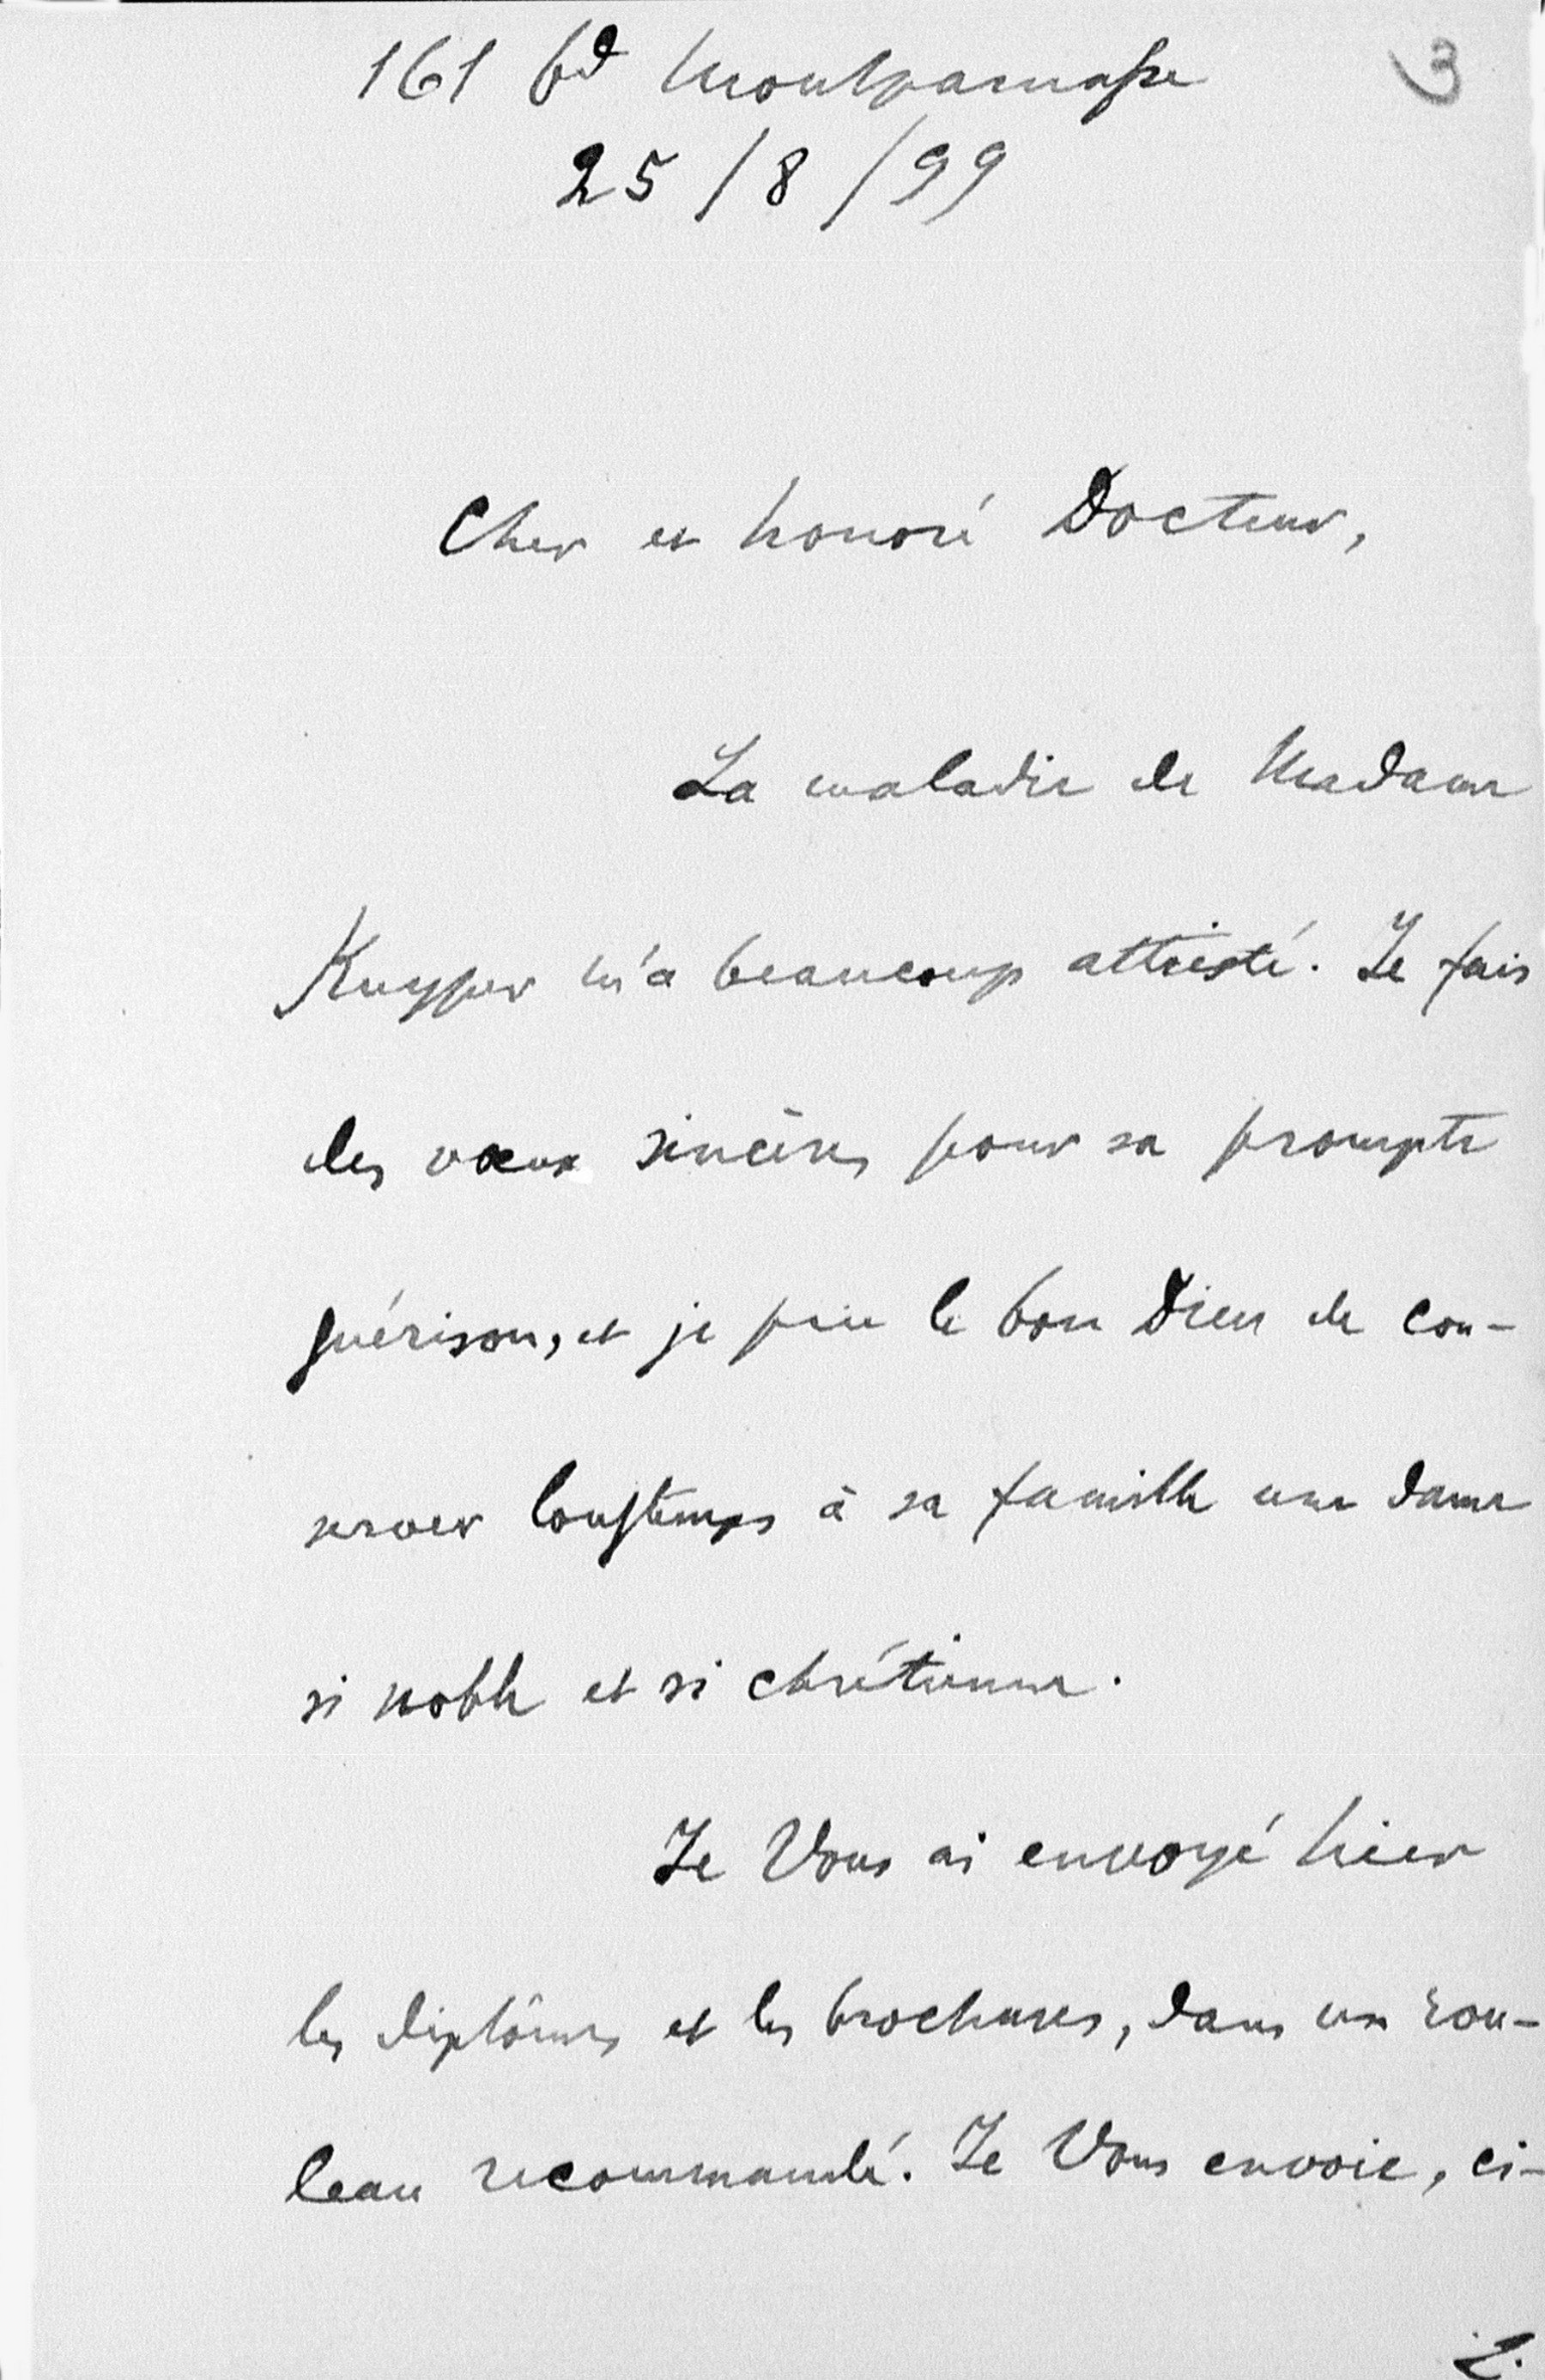 161 bd Montparnasse
3
25/8/99
Cher et honoré Docteur,
La maladie de Madame
Kuyper m'a beaucoup attristé. Je fais
des vœux sincères pour sa prompte
guérison, et je prie le bon Dieu de con-
server longtemps à sa famille une dame
si noble et si chrétienne.
Je Vous ai envoyé hier
les diplômes et les brochures, dans un rou-
leau recommandé. Je Vous envoie, ci-